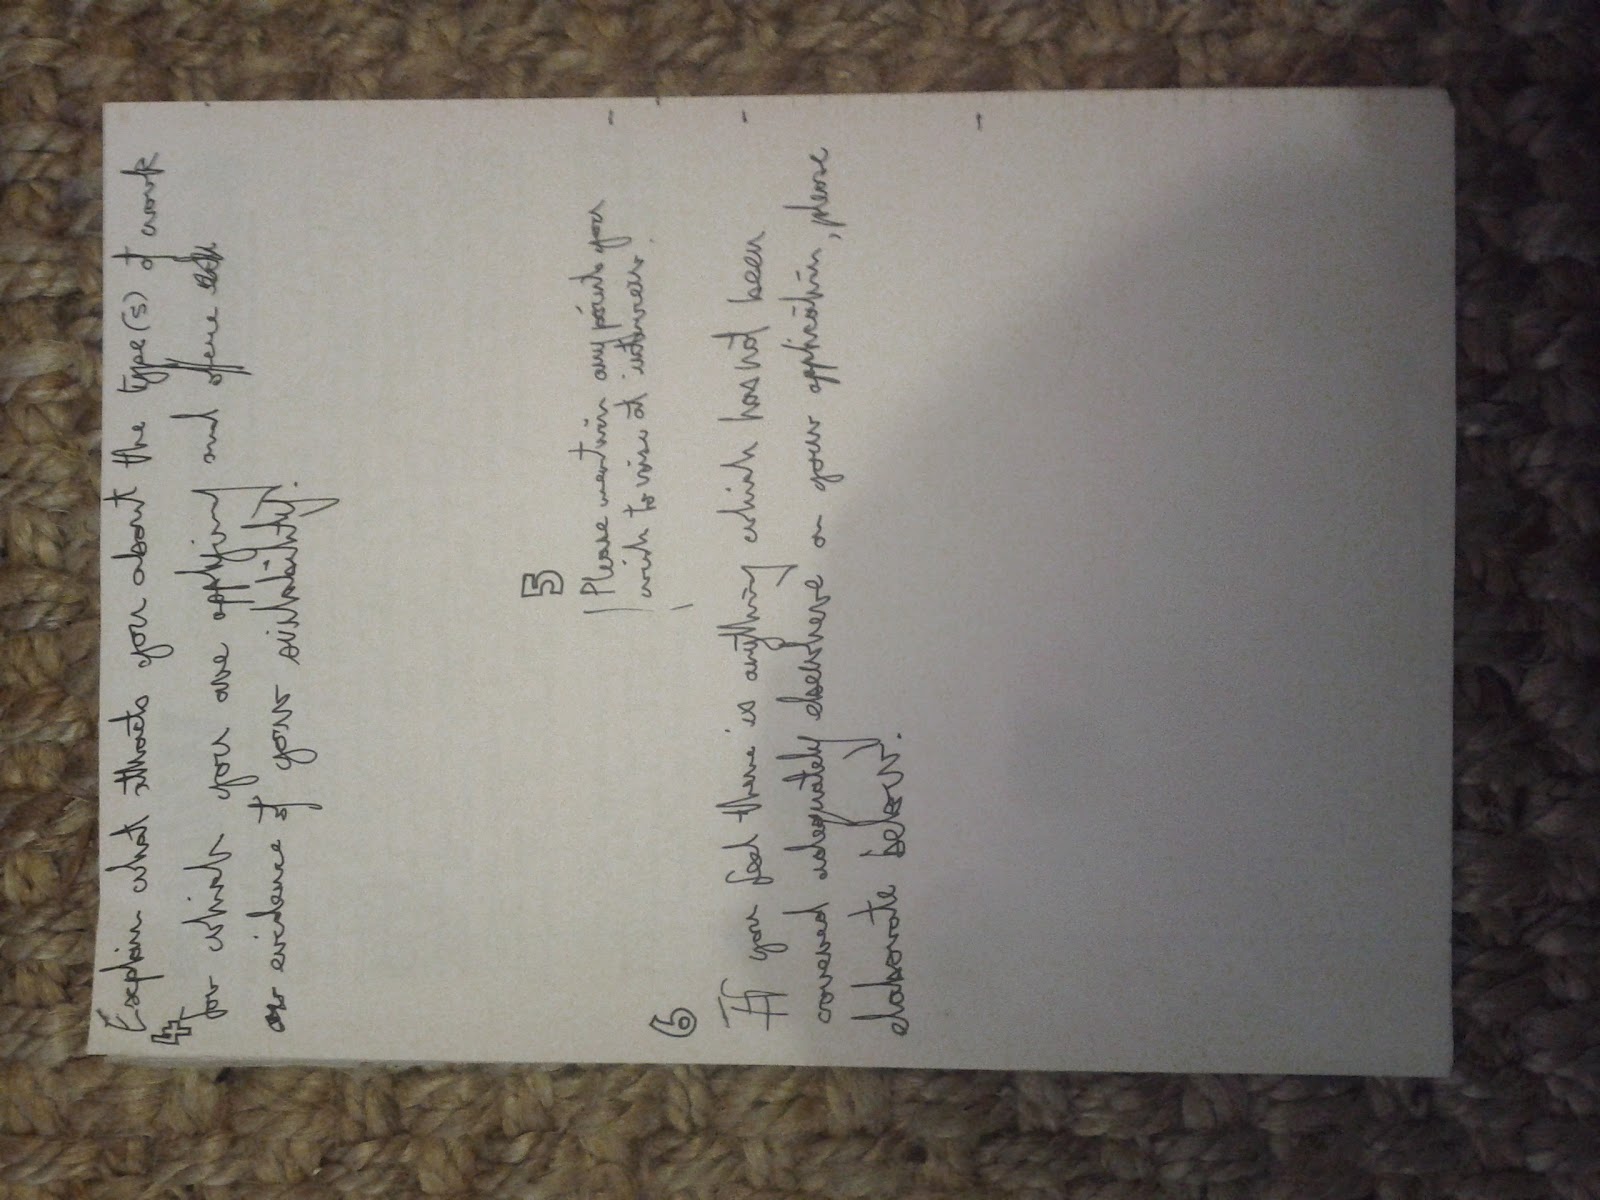 Explain what attracts you about the type(s) of work
4
for which you are applying and offer
evidence of your suitability.
5
Please mention any points you
wish to raise at interview.
6
If you feel there is anything which has not been
covered adequately elsewhere on your application, please
elaborate below.